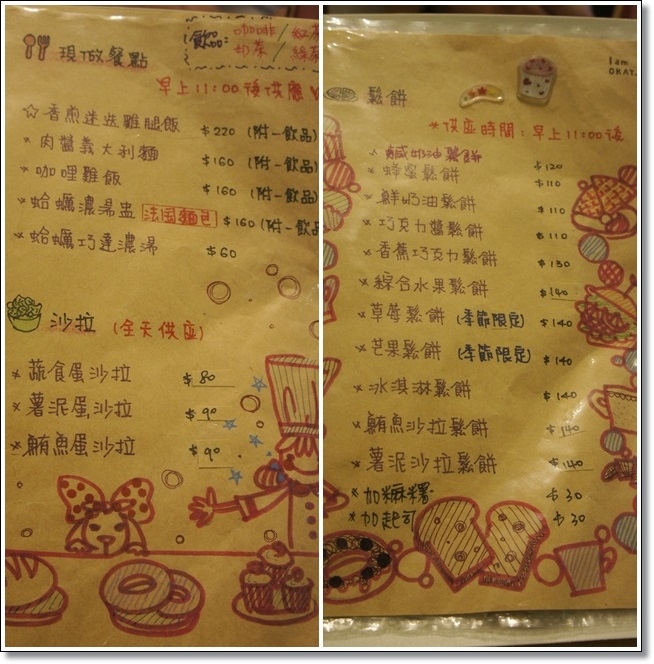 現做餐點
飲品: 咖啡/紅茶
奶茶/綠茶
早上11:00後供應
☆香煎迷迭雞腿飯 $220 (附一飲品)
*肉醬義大利麵 $160 (附一飲品)
*咖哩雞飯 $160 (附一飲品)
*蛤蠣濃湯盅 法國麵包 $160 (附一飲品
*蛤蠣巧達濃湯 $60
沙拉 (全天供應)
*蔬食蛋沙拉 $80
*薯泥蛋沙拉 $90
*鮪魚蛋沙拉 $90
I am
OKAY.
鬆餅
*供應時間:早上11:00後
*鹹奶油鬆餅 $120
*蜂蜜鬆餅 $110
*鮮奶油鬆餅 $110
*巧克力醬鬆餅 $110
*香蕉巧克力鬆餅 $130
*綜合水果鬆餅 $140
*草莓鬆餅 (季節限定) $140
*芒果鬆餅 (季節限定) $140
*冰淇淋鬆餅 $140
*鮪魚沙拉鬆餅 $140
*薯泥沙拉鬆餅 $140
*加麻糬 $30
*加起司 $30